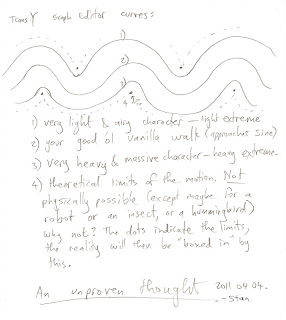 TransY graph editor curves:
1)
2)
3)
4)
1) very light & airy character – light extreme
2) your good ol' vanilla walk (approaches sine)
3) very heavy & massive character – heavy extreme.
4) theoretical limits of the motion. Not
physically possible (except maybe for a
robot or an insect, or a hummingbird)
why not? The dots indicate the limits,
the reality will then be "boxed in" by
this.
An unproven thought
2011.04.04.
– Stan.